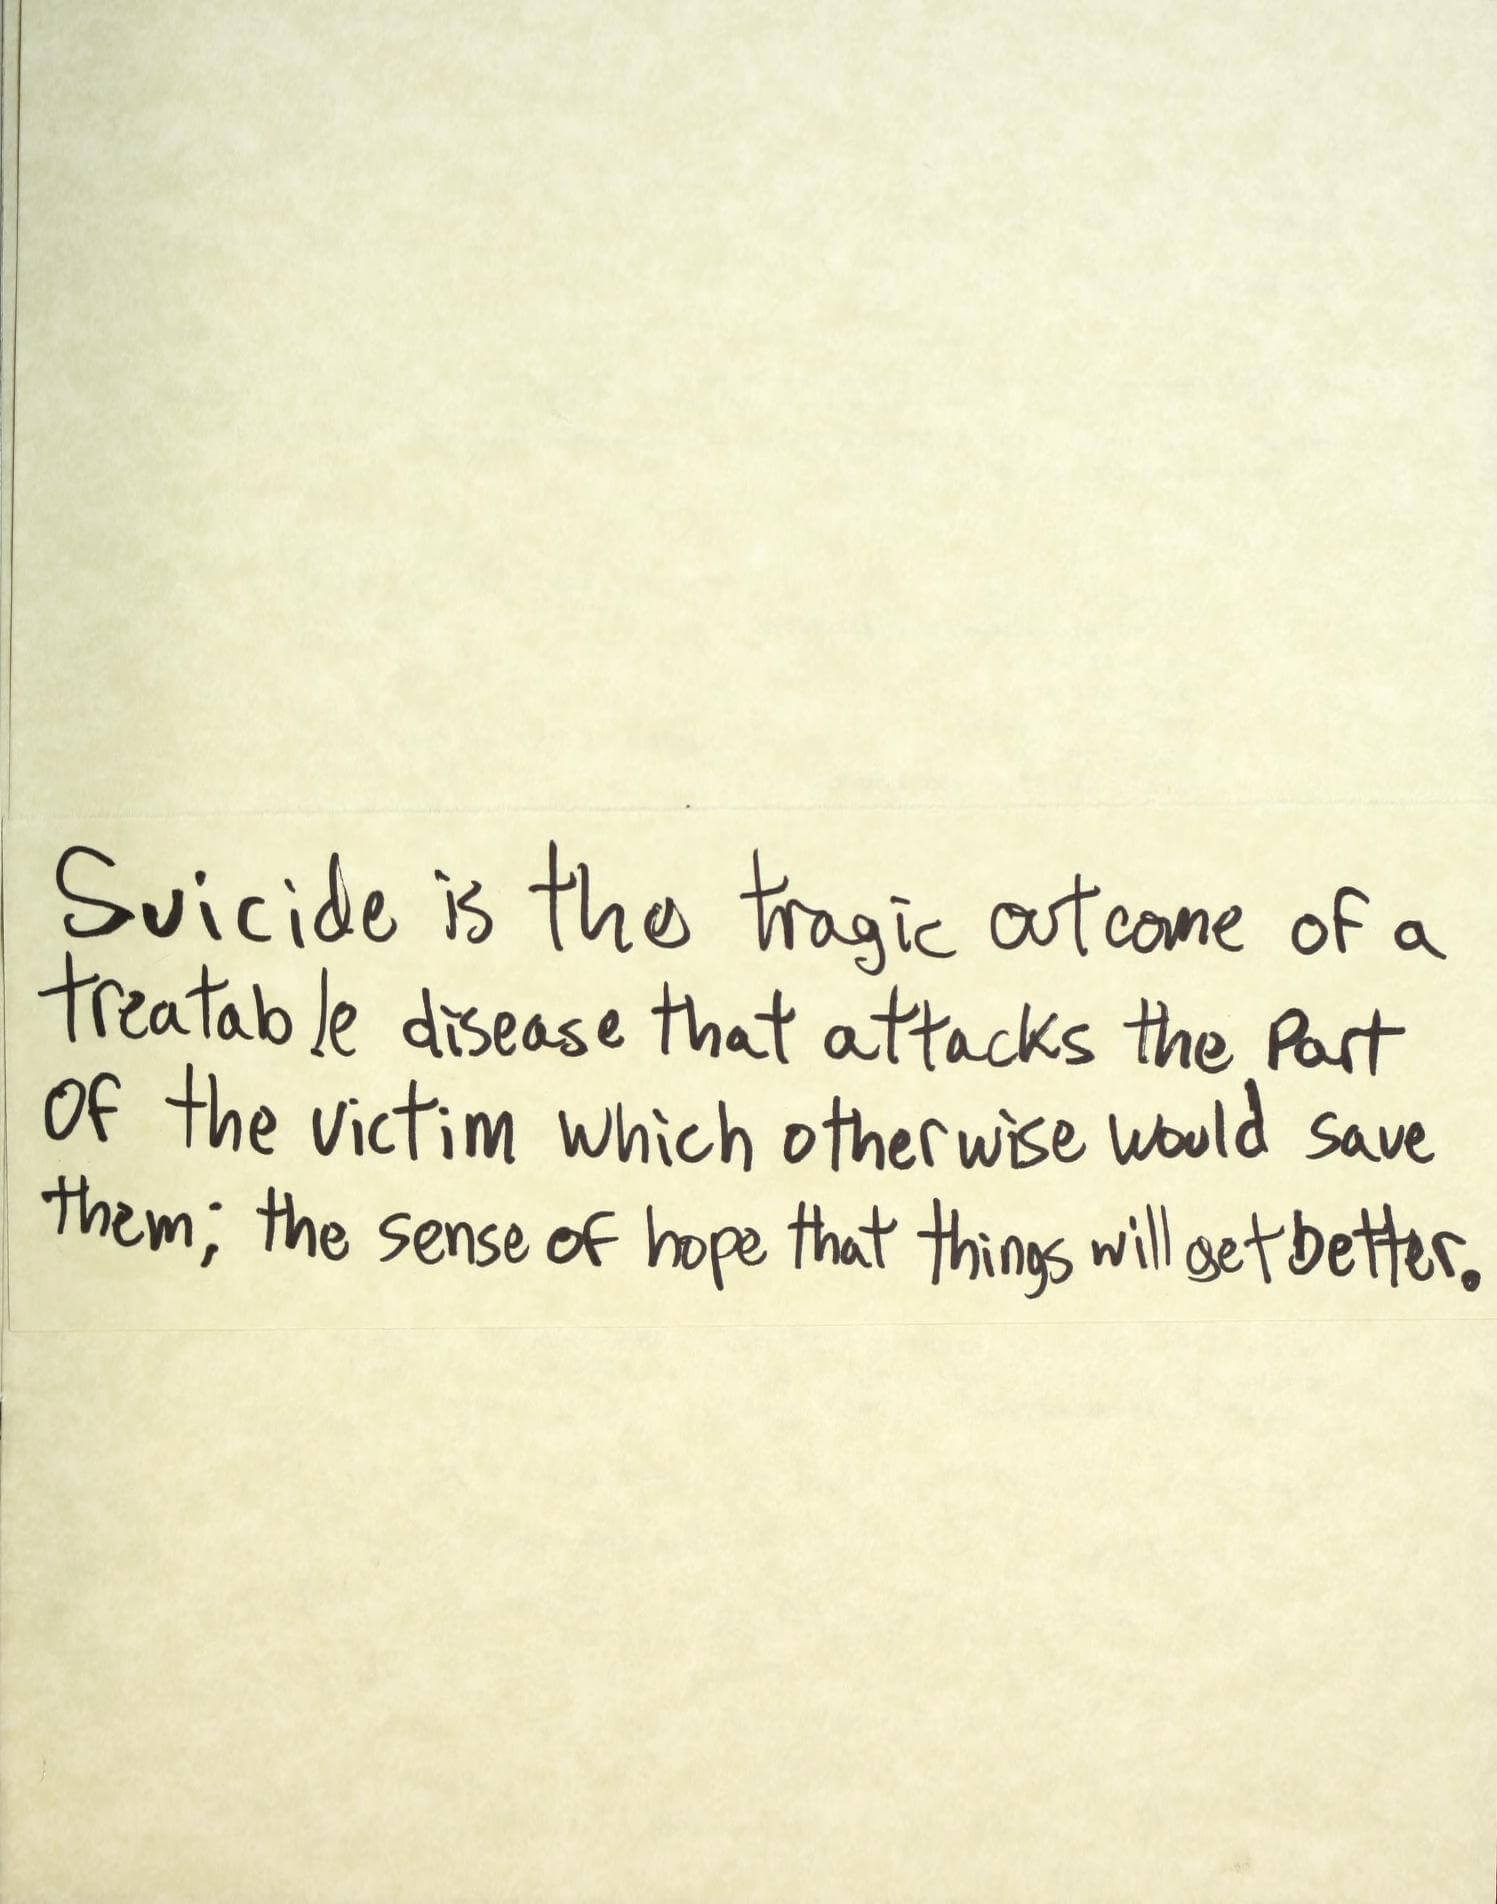 Suicide is the tragic outcome of a
treatable disease that attacks the part
of the victim which otherwise would save
them; the sense of hope that things will get better.